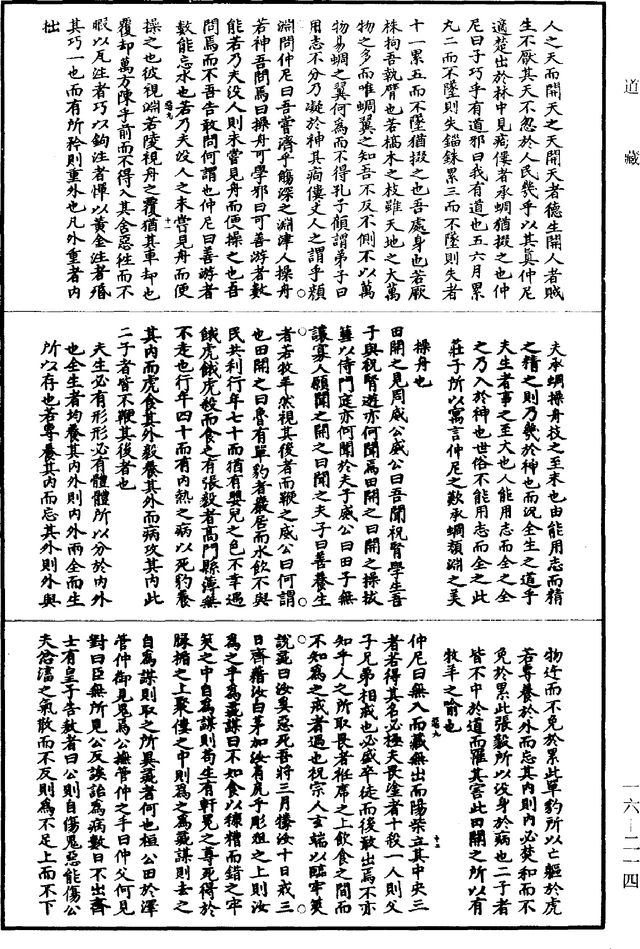 道藏
人之天而開天之天開天者德生開人者賊
生不厭其天不忽於人民幾乎以其真仲尼
適楚出於林中見痀僂者承蜩猶掇之也仲
尼曰子巧乎有道邪曰我有道也五六月累
丸二而不墜則失者錙銖累三而不墜則失者
十一累五而不墜猶掇之也吾處身也若厥
株拘吾執臂也若槁木之枝雖天地之大萬
物之多而唯蜩翼之知吾不反不側不以萬
物易蜩之翼何為而不得孔子顧謂弟子曰
用志不分乃凝於神其痀僂丈人之謂乎顏
淵問仲尼曰吾嘗濟乎觴深之淵津人操舟
若神吾問焉曰操舟可學邪曰可善游者數
能若乃夫没人則未嘗見舟而便操之也吾
問焉而不吾告敢問何謂也仲尼曰善游者
數能忘水也若乃夫没人之未嘗見舟而便
操之也彼視淵若陵視舟之覆猶其車却也
覆却萬方陳乎前而不得入其舍惡往而不
暇以瓦注者巧以鉤注者憚以黃金注者殙
其巧一也而有所矜則重外也凡外重者内
拙
夫承蜩操舟技之至末也由能用志而精
之精之則乃幾於神也而況全生之道乎
夫生者事之至大也人能用志而全之全
之乃入於神也世俗不能用志而全之此
莊子所以寓言仲尼之歎承蜩顏淵之美
操舟也
田開之見周威公威公曰吾聞祝腎學生吾
子與祝腎遊亦何聞焉田開之曰開之操拔
篲以侍門庭亦何聞於夫子威公曰田子無
讓寡人願聞之開之曰聞之夫子曰善養生
者若牧羊然視其後者而鞭之威公曰何謂
也田開之曰魯有單豹者巖居而水飲不與
民共利行年七十而猶有嬰兒之色不幸遇
餓虎餓虎殺而食之有張毅者高門縣薄無
不走也行年四十而有内熱之病以死豹養
其内而虎食其外毅養其外而病攻其内此
二子者皆不鞭其後者也
夫生必有形形必有體體所以分於内外
也全生者均養其内外則内外兩全而生
所以存也若專養其内而忘其外則外與
物迕而不免於累此單豹所以亡軀於虎
若專養於外而忘其内則内必焚和而不
免於累此張毅所以没身於病也二子者
皆不中於道而罹其害此田開之所以有
牧羊之喻也
仲尼曰無入而藏無出而陽柴立其中央三
者若得其名必極夫畏塗者十殺一人則父
子兄弟相戒也必盛卒徒而後敢出焉不亦
知乎人之所取畏者袵席之上飲食之間而
不知為之戒者過也祝宗人玄端以臨牢筴
說彘曰汝奚惡死吾將三月㹖汝十日戒三
日齊藉汝白茅加汝肩尻乎彫俎之上則汝
為之乎為彘謀曰不如食以糠糟而錯之牢
筴之中自為謀則苟生有軒冕之尊死得於
腞楯之上聚僂之中則為之為彘謀則去之
自為謀則取之所異彘者何也桓公田於澤
管仲御見鬼焉公撫管仲之手曰仲父何見
對曰臣無所見公反誒詒為病數日不出齊
士有皇子告敖者曰公則自傷鬼惡能傷公
夫忿滀之氣散而不反則為不足上而不下
一六—二一四